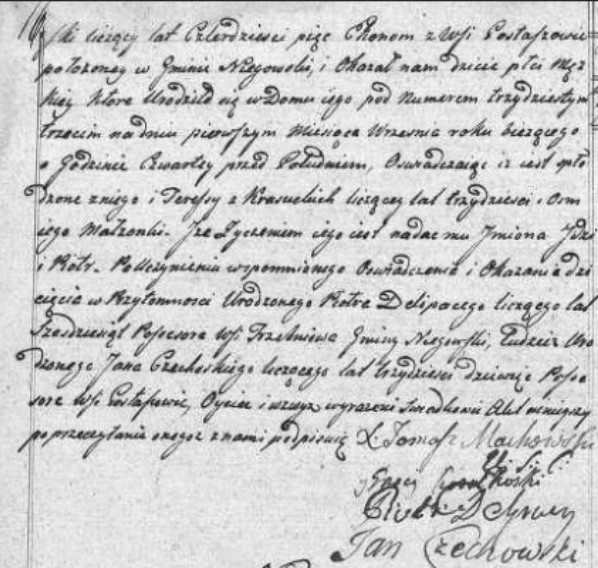 ski liczący lat Czterdziesci pięc Ekonom z Wsi Postaszowic
położoney w Gminie Niegowski, i Okazał nam dziecie płci męz
kiey które Urodziło się w Domu iego pod Numerem trzydziestym
trzecim na dniu pierwszym Miesiąca Wrzesnia roku bieżącego
o Godzinie Czwartey przed Południem, Oswiadczaiąc iz iest spło
dzone z niego i Teressy z Krasuckich liczącey lat trzydziesci Osm
iego Małżonki. Jże Życzeniem iego iest nadac mu Jmiona Jdzi
i Piotr. Po Uczynieniu wspomnionego Oswiadczenia i Okazania dzi
ecięcia w Przytomnosci Urodzonego Piotra Delipacego liczącego lat
Szesdziesiąt Possesora Wsi Trzebniowa Gminy Niegowski, tudzież Uro
dzonego Jana Czechoskiego liczącego lat trzydziesci dziewięc Posse
sora Wsi Postaszowic, Oyciec i wzwyz wyrazeni Swiadkowie Akt ninieyszy
po przeczytaniu onegoz z nami podpisuią X. Tomasz Machowski
Piotr
Jan Czechowski